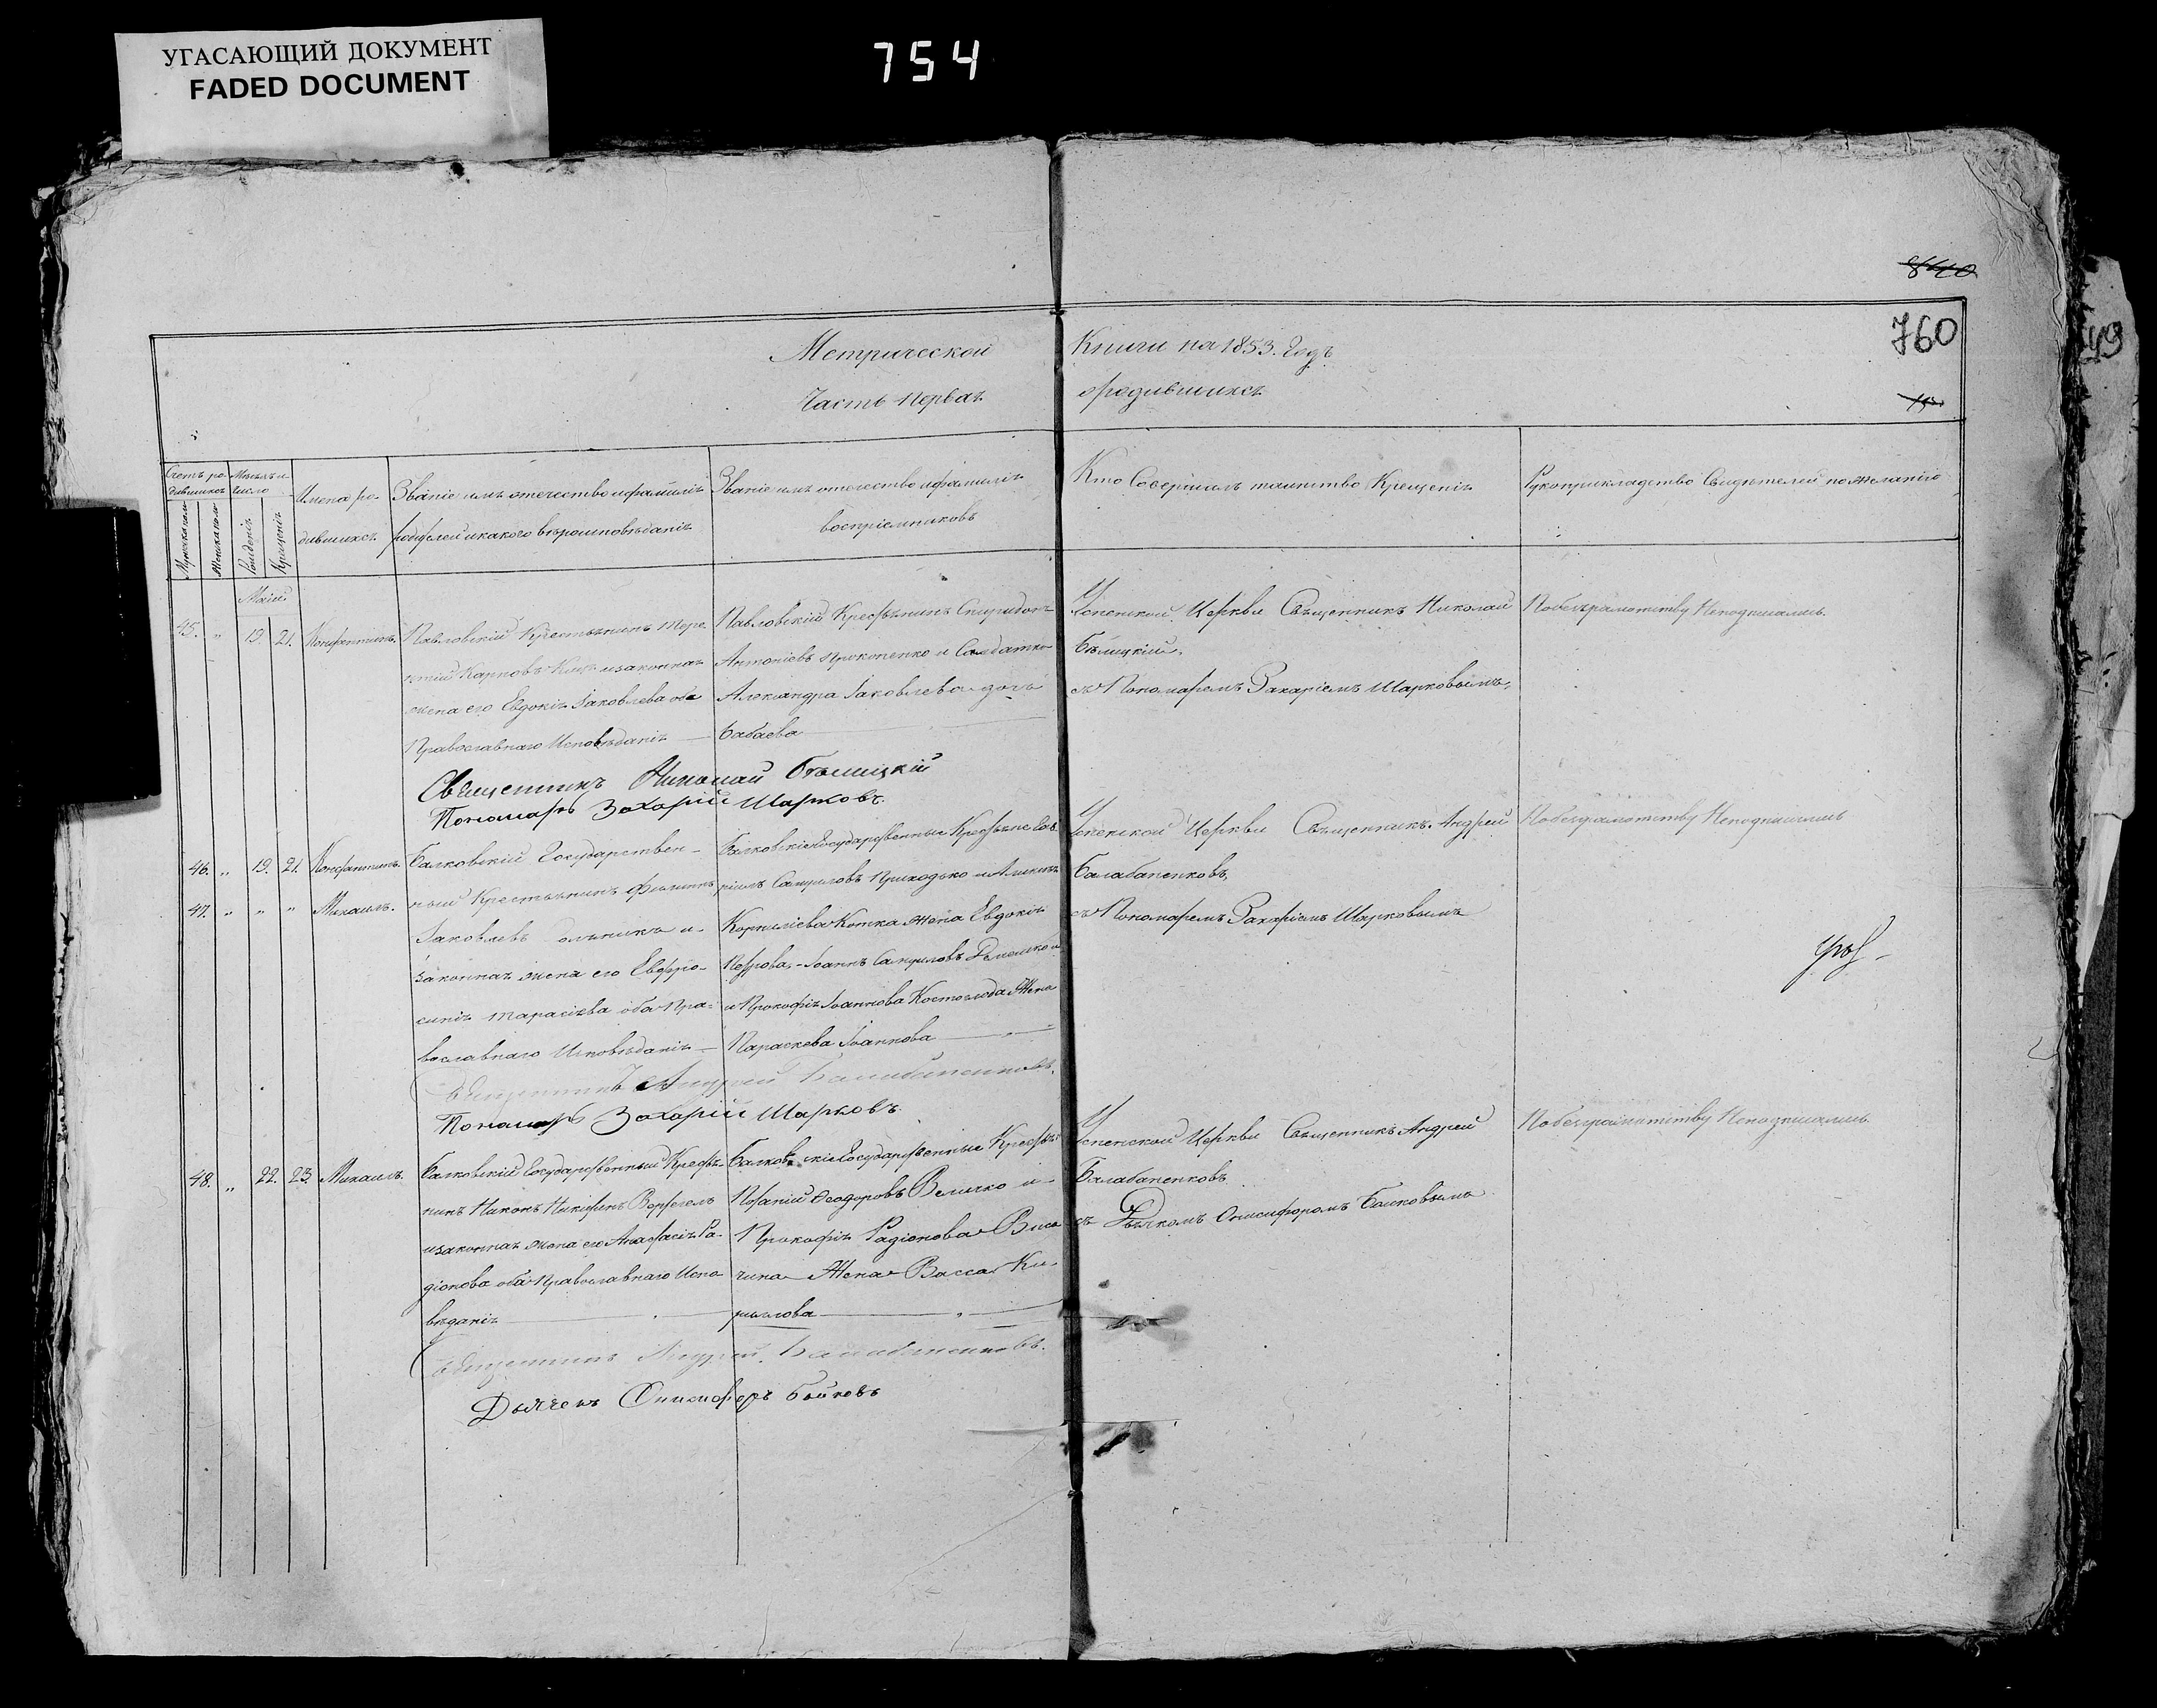 УГАСАЮЩИЙ ДОКУМЕНТ
FADED DOCUMENT
754
8440
760
49
Метрической Книги на 1853. Годъ
Часть первая о родившихся
Счетъ родившихся
Мѣсяцъ и число
Мужеска полу
Женска полу
Рожденія
Крещенія
Имена родившихся
Званіе имя отечество и фамилія
родителей и какого вѣроисповѣданія
Званіе имя отечество и фамилія
воспріемниковъ
Кто Совершалъ таинство Крещенія
Рукоприкладство Свидѣтелей по желанію
Маій
45. „ 19. 21. Константинъ.
Павловскій Крестьянинъ Тере-
нтій Карповъ и законная
жена его Евдокія Іаковлева оба
Православнаго Исповѣданія
Павловскій Крестьянинъ Спиридонъ
Антоніевъ Прокопенко и Солдатка
Александра Іаковлева дочь
Бабаева
Успенской Церкви Священникъ Николай
Бѣлицкій,
съ Пономаремъ Захаріемъ Шарковымъ,
По безграмотству Неподписались.
Священникъ Николай Бѣлицкій
Пономарь Захарій Шарковъ.
46. „ 19. 21. Константинъ.
47. „ „ „ Михаилъ.
Балковскій Государствен-
ный Крестьянинъ Филиппъ
Іаковлевъ и
законная жена его Евфро-
синія Тарасіева оба Пра-
вославнаго Исповѣданія
Балковскіе Государственные Крестьяне Гав-
ріилъ Самуиловъ Приходько и
Корниліева Котка жена Евдокія
Петрова, - Іоаннъ Самуиловъ
и Прокофія Іоаннова Костоглода Жена
Параскева Іоаннова
Успенской Церкви Священникъ Андрей
Балабаненковъ,
съ Пономаремъ Захаріемъ Шарковымъ
По безграмотству Неподписались
Священникъ Андрей Балабаненковъ.
Пономарь Захарій Шарковъ.
48. „ 22. 23. Михаилъ.
Балковскій Государственный Крестья-
нинъ Никонъ
и законная жена его Анастасія Ра-
діонова оба Православнаго Испо-
вѣданія
Балковскіе Государственные Крестьяне
Ѳеодоровъ Величко и
Прокофія Радіонова
Жена Васса Ки-
рилова
Успенской Церкви Священникъ Андрей
Балабаненковъ
съ Дьячкомъ Онисифоромъ Бойковымъ
По безграмотству Неподписались
Священникъ Андрей Балабаненковъ.
Дьячекъ Онисифоръ Бойковъ